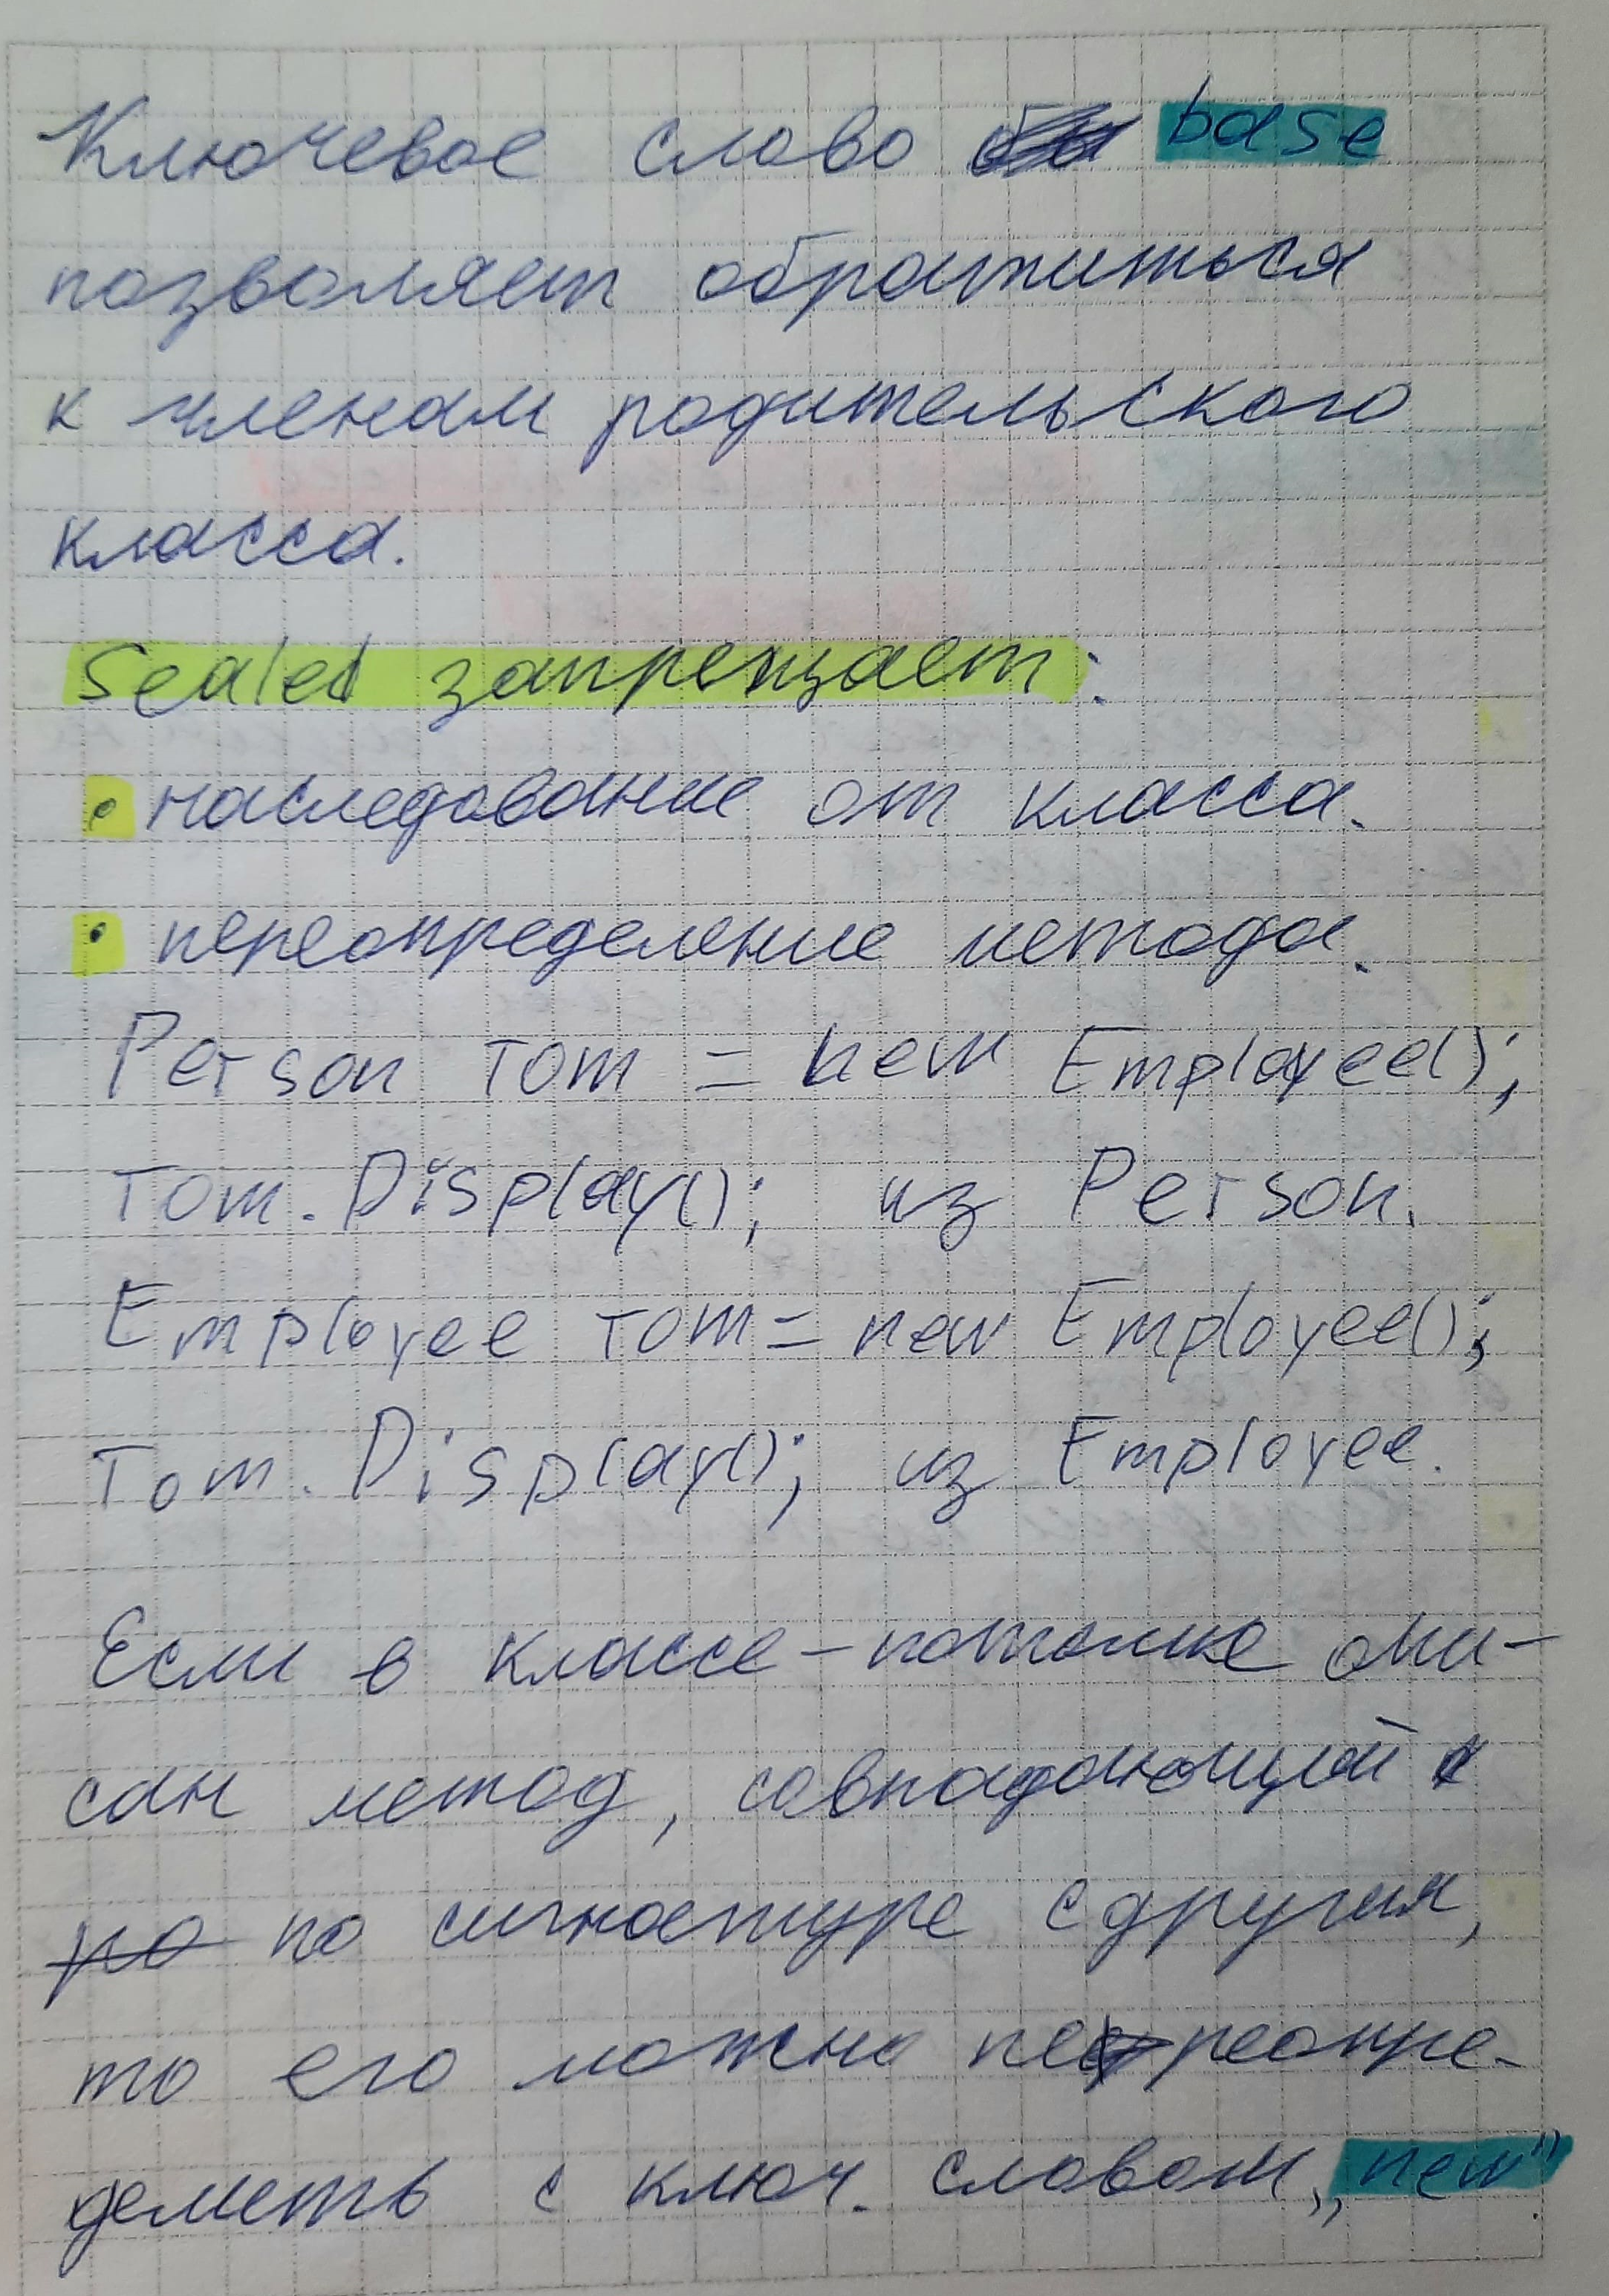 Ключевое слово base
позволяет обратиться
к членам родительского
класса.
Sealed запрещает:
• наследование от класса.
• переопределение метода.
Person Tom = new Employee();
Tom.Display(); из Person.
Employee Tom = new Employee();
Tom.Display(); из Employee.
Если в классе-потомке опи-
сан метод, совпадающий
по сигнатуре с другим,
то его можно переопре-
делить с ключ. словом „new”.